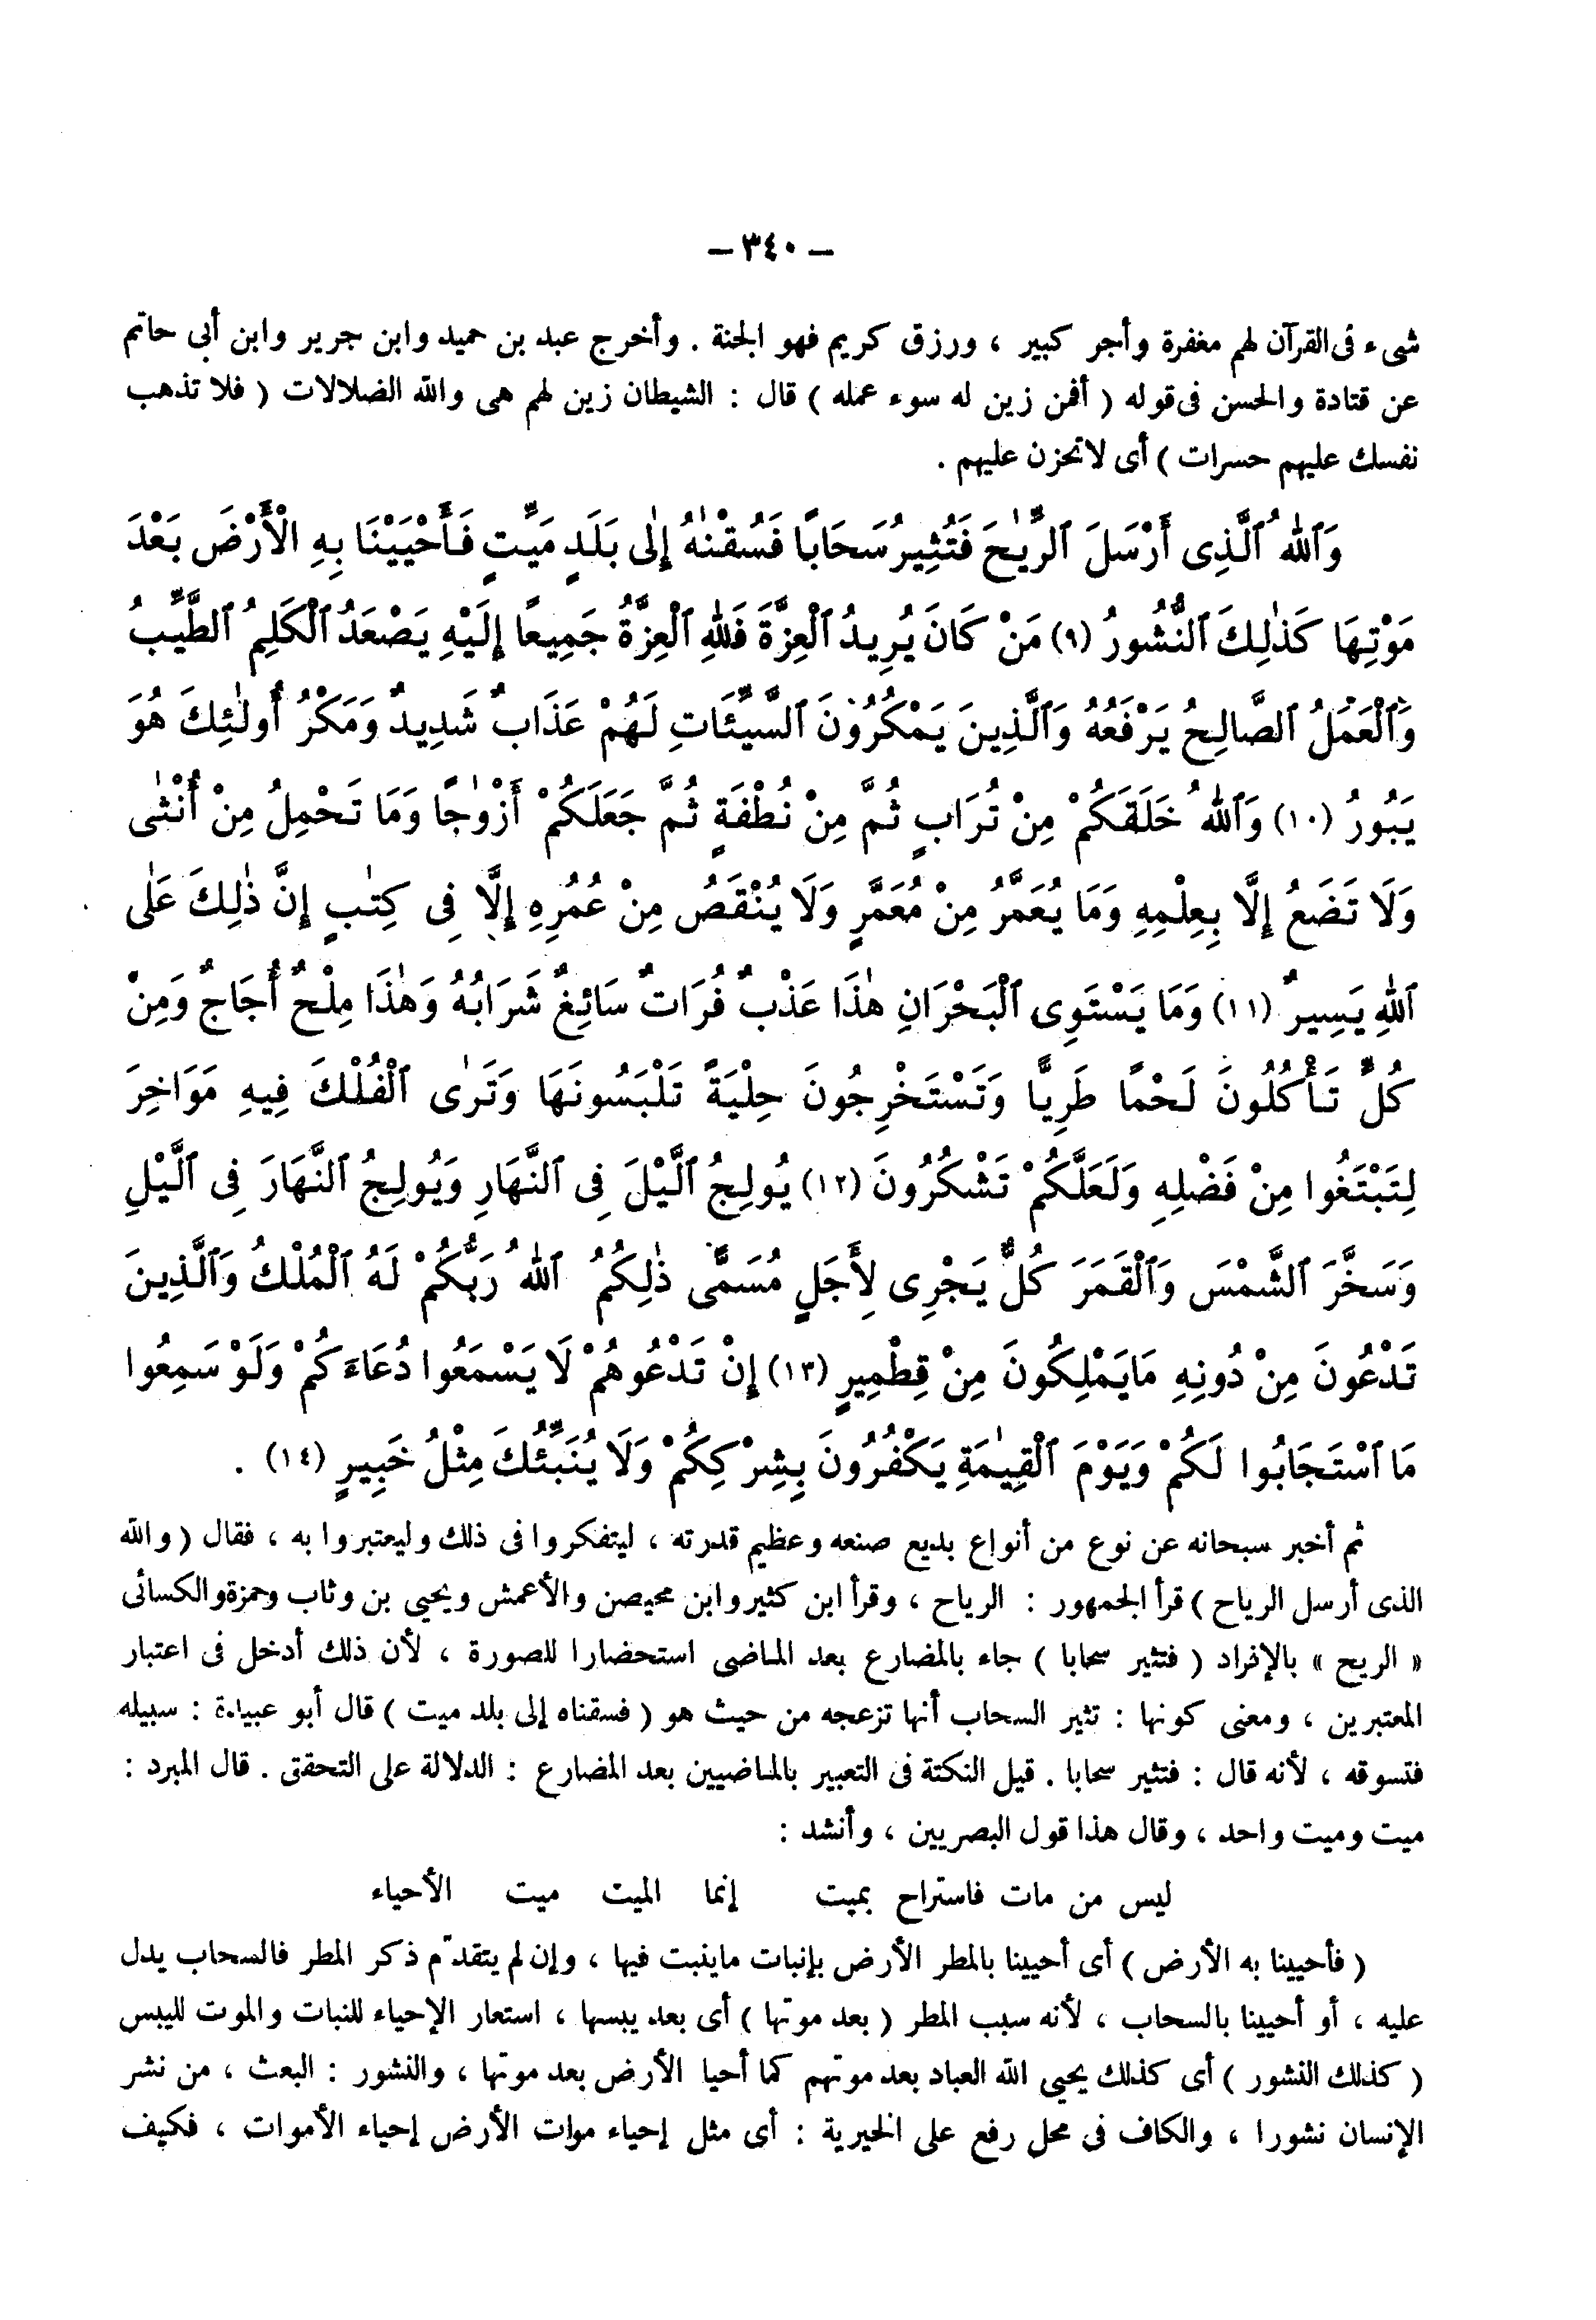 – ٣٤٠ –
شىء فى القرآن لهم مغفرة وأجر كبير ، ورزق كريم فهو الجنة . وأخرج عبد بن حميد وابن جرير وابن أبى حاتم
عن قتادة والحسن فى قوله ( أفمن زين له سوء عمله ) قال : الشيطان زين لهم هى والله الضلالات ( فلا تذهب
نفسك عليهم حسرات ) أى لا تحزن عليهم .
وَٱللهُ ٱلَّذِى أَرْسَلَ ٱلرِّيٰحَ فَتُثِيرُ سَحَابًا فَسُقْنٰهُ إِلٰى بَلَدٍ مَيِّتٍ فَأَحْيَيْنَا بِهِ الْأَرْضَ بَعْدَ
مَوْتِهَا كَذٰلِكَ ٱلنُّشُورُ (٩) مَنْ كَانَ يُرِيدُ ٱلْعِزَّةَ فَلِلّٰهِ ٱلْعِزَّةُ جَمِيعًا إِلَيْهِ يَصْعَدُ ٱلْكَلِمُ ٱلطَّيِّبُ
وَٱلْعَمَلُ ٱلصَّالِحُ يَرْفَعُهُ وَٱلَّذِينَ يَمْكُرُونَ ٱلسَّيِّئَاتِ لَهُمْ عَذَابٌ شَدِيدٌ وَمَكْرُ أُولٰئِكَ هُوَ
يَبُورُ (١٠) وَٱللهُ خَلَقَكُمْ مِنْ تُرَابٍ ثُمَّ مِنْ نُطْفَةٍ ثُمَّ جَعَلَكُمْ أَزْوٰجًا وَمَا تَحْمِلُ مِنْ أُنْثٰى
وَلَا تَضَعُ إِلَّا بِعِلْمِهِ وَمَا يُعَمَّرُ مِنْ مُعَمَّرٍ وَلَا يُنْقَصُ مِنْ عُمُرِهِ إِلَّا فِى كِتٰبٍ إِنَّ ذٰلِكَ عَلٰى
ٱللهِ يَسِيرٌ (١١) وَمَا يَسْتَوِى ٱلْبَحْرَانِ هٰذَا عَذْبٌ فُرَاتٌ سَائِغٌ شَرَابُهُ وَهٰذَا مِلْحٌ أُجَاجٌ وَمِنْ
كُلٍّ تَأْكُلُونَ لَحْمًا طَرِيًّا وَتَسْتَخْرِجُونَ حِلْيَةً تَلْبَسُونَهَا وَتَرٰى ٱلْفُلْكَ فِيهِ مَوَاخِرَ
لِتَبْتَغُوا مِنْ فَضْلِهِ وَلَعَلَّكُمْ تَشْكُرُونَ (١٢) يُولِجُ ٱلَّيْلَ فِى ٱلنَّهَارِ وَيُولِجُ ٱلنَّهَارَ فِى ٱلَّيْلِ
وَسَخَّرَ ٱلشَّمْسَ وَٱلْقَمَرَ كُلٌّ يَجْرِى لِأَجَلٍ مُسَمًّى ذٰلِكُمُ ٱللهُ رَبُّكُمْ لَهُ ٱلْمُلْكُ وَٱلَّذِينَ
تَدْعُونَ مِنْ دُونِهِ مَايَمْلِكُونَ مِنْ قِطْمِيرٍ (١٣) إِنْ تَدْعُوهُمْ لَا يَسْمَعُوا دُعَاءَكُمْ وَلَوْ سَمِعُوا
مَا ٱسْتَجَابُوا لَكُمْ وَيَوْمَ ٱلْقِيٰمَةِ يَكْفُرُونَ بِشِرْكِكُمْ وَلَا يُنَبِّئُكَ مِثْلُ خَبِيرٍ (١٤) .
ثم أخبر سبحانه عن نوع من أنواع بديع صنعه وعظيم قدرته ، ليتفكروا فى ذلك وليعتبروا به ، فقال ( والله
الذى أرسل الرياح ) قرأ الجمهور : الرياح ، وقرأ ابن كثير وابن محيصن والأعمش ويحيى بن وثاب وحمزة والكسائى
« الريح » بالإفراد ( فتثير سحابا ) جاء بالمضارع بعد الماضى استحضارا للصورة ، لأن ذلك أدخل فى اعتبار
المعتبرين ، ومعنى كونها : تثير السحاب أنها تزعجه من حيث هو ( فسقناه إلى بلد ميت ) قال أبو عبيدة : سبيله
فتسوقه ، لأنه قال : فتثير سحابا . قيل النكتة فى التعبير بالماضيين بعد المضارع : الدلالة على التحقق . قال المبرد :
ميت وميت واحد ، وقال هذا قول البصريين ، وأنشد :
ليس من مات فاستراح بميت إنما الميت ميت الأحياء
( فأحيينا به الأرض ) أى أحيينا بالمطر الأرض بإنبات ماينبت فيها ، وإن لم يتقدّم ذكر المطر فالسحاب يدل
عليه ، أو أحيينا بالسحاب ، لأنه سبب المطر ( بعد موتها ) أى بعد يبسها ، استعار الإحياء للنبات والموت لليبس
( كذلك النشور ) أى كذلك يحيى الله العباد بعد موتهم كما أحيا الأرض بعد موتها ، والنشور : البعث ، من نشر
الإنسان نشورا ، والكاف فى محل رفع على الخبرية : أى مثل إحياء موات الأرض إحياء الأموات ، فكيف